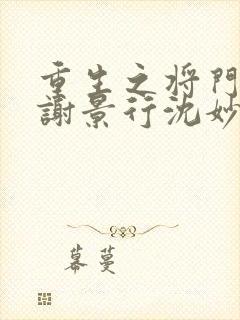 重生之将門
謝景行沈妙
幕蔓